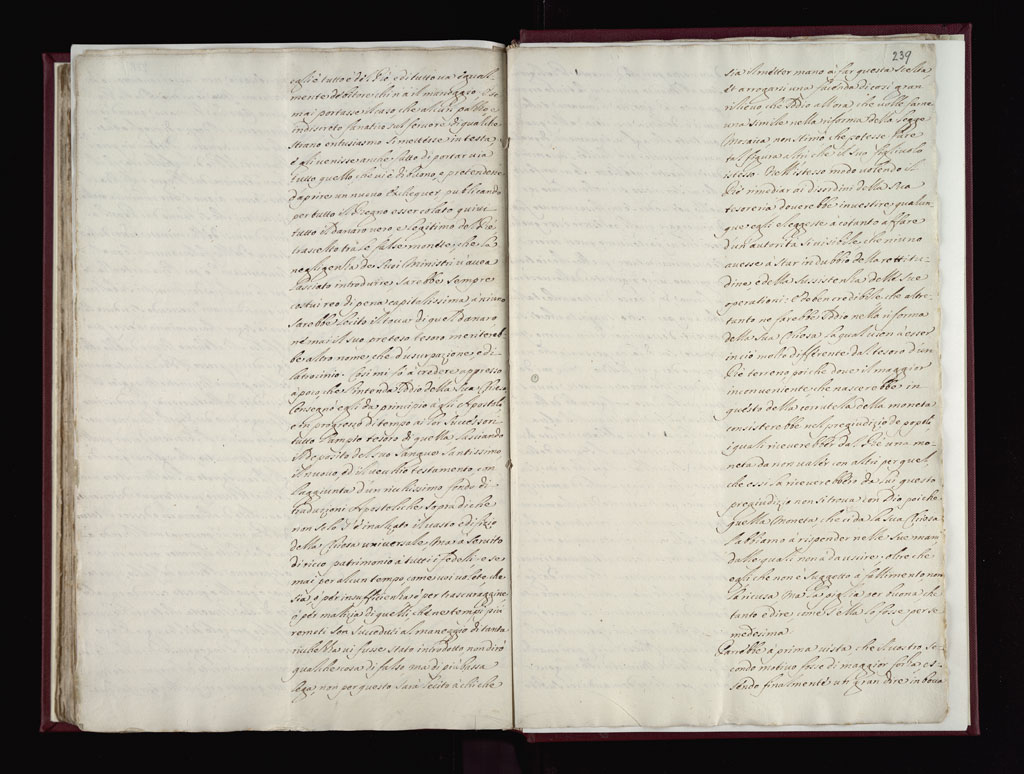 egli è tutto è del Rè, e di tutto va equal-
mente debitore chi n'à il maneggio. E se
mai portasse il caso che alcun pazzo, e
indiscreto fanatico sul fervore di qualche
strano entusiasmo si mettesse in testa
e gli venisse anche fatto di portar via
tutto quello che vi è di buono, e pretendesse
d'aprire un nuovo Exchequer publicando
per tutto il Regno esser colato quivi
tutto il danaro vero e legitimo del Rè
trascelto trà le false monete che la
negligenza de suoi Ministri v'avea
lasciato introdurre; sarebbe sempre
costui reo di pena capitalissima, à niuno
sarebbe lecito il tocar di quel danaro
nè mai il suo preteso tesoro meritereb-
be altro nome, che d'usurpazione, e di
latrocinio. Così mi fo à credere appresso
à poco che l'intenda Iddio della Sua Chiesa
Consegnò egli da principio à gli Apostoli
e in progresso di tempo ai lor Successori
tutto l'ampio tesoro di quella lasciando
il deposito del suo Sangue Santissimo
il nuovo, ed il vecchio testamento, con
l'aggiunta d'un ricchissimo fondo di
tradizioni Apostoliche, sopra di che
non solo s'è inalzato il vasto edifizio
della Chiesa universale, mà à servito
di ricco patrimonio à tutti i fedeli; e se
mai per alcun tempo, come voi volete,
sia ò per insufficienza ò per trascuraggine,
ò per malizia di quelli, che ne tempi più
remoti son succeduti al maneggio di tanta
ricchezza vi fusse stato introdotto non dirò
qualche cosa di falso, mà di più bassa
lega, non per questo sarà lecito à chi che
239
sia il metter mano à far questa scelta
et arrogarsi una facoltà di così gran
rilievo che Iddio allora che volle farne
una simile nella riforma della legge
Mosaica non stimò che potesse fare
tal figura altri che il suo figliuolo
istesso. Nell'istesso modo volendo il
Rè rimediar ai disordini della sua
tesoreria dovrebbe investire qualun-
que egli elegesse à cotanto affare
d'un autorità sì visibile che niuno
avesse à star in dubbio della rettitu-
dine, e della sussistenza delle sue
operationi: Ed è ben credibile che altre-
tanto ne farebbe Iddio nella riforma
della sua Chiesa, la qual vien à esser
in ciò molto differente dal tesoro d'un
Rè terreno poiche dove il maggior
inconveniente che nascerebbe in
questo della corrutela della moneta
consisterebbe nel pregiudizio de popoli
i quali riceverebber dal Rè una mo-
neta da non valer con altri per quel
che essi la riceverebbero da lui, questo
pregiudizio non si trova con Dio, poiche
quella Moneta che ci dà la sua Chiesa
l'abbiamo à rispender nelle sue mani
dalle quali non à da uscire, oltre che
egli che non è suggetto à fallimento non
la ricusa ma la piglia per buona che
tanto è dire come s'ella lo fosse per se
medesima
Parrebbe à prima vista che il vostro se-
condo motivo fosse di maggior forza es-
sendo finalmente un gran dire in bocca